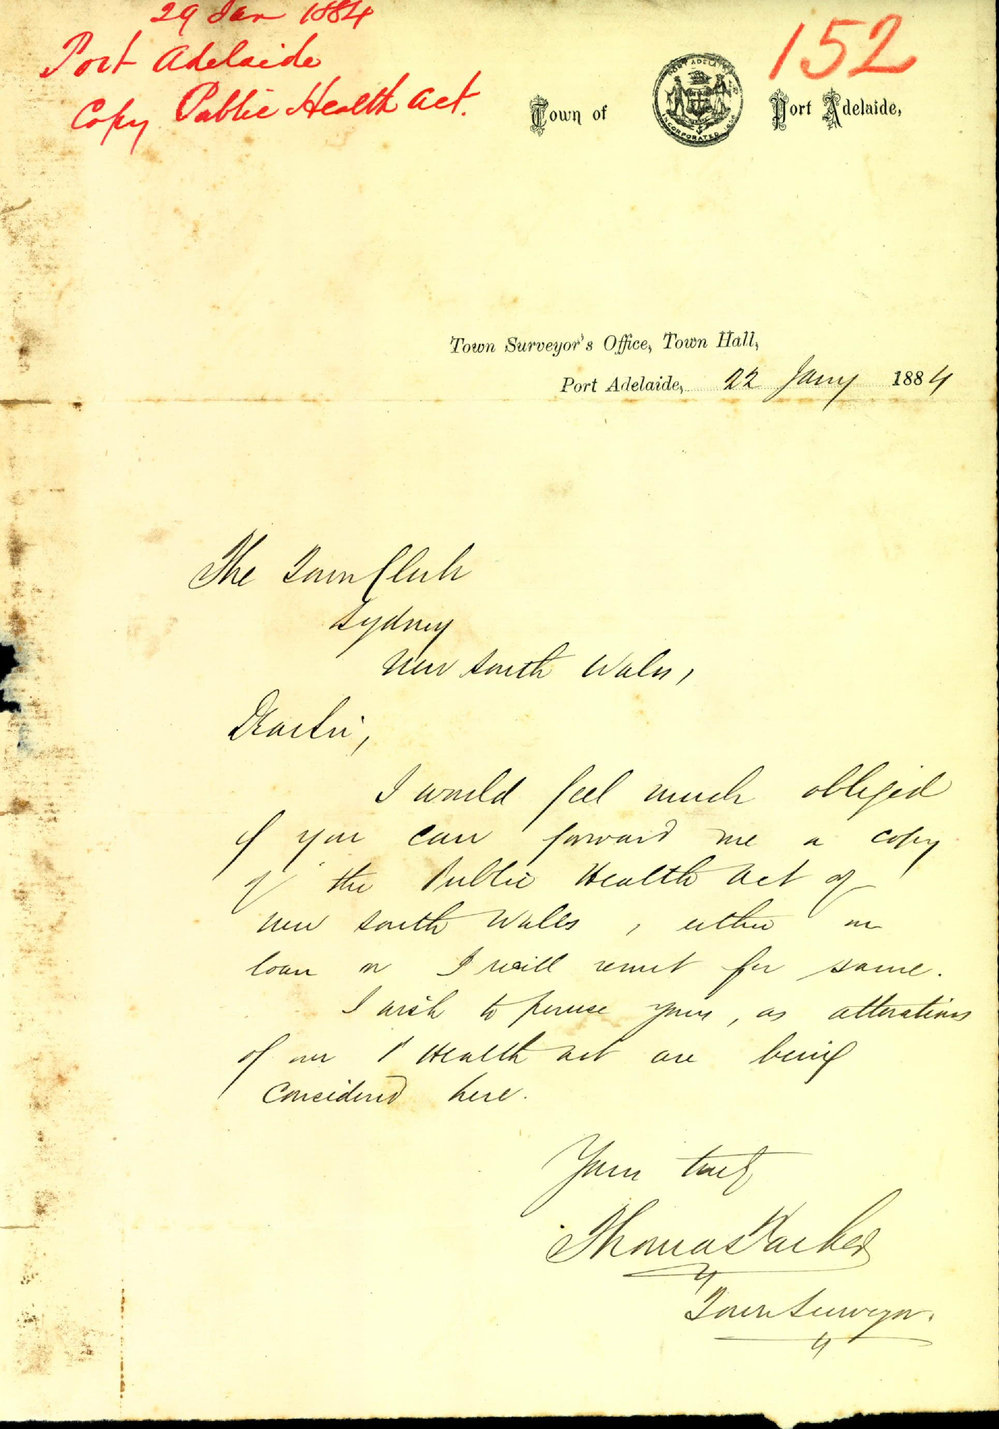 29 Jan 1884
Port Adelaide
Copy Public Health Act.
152
Town of Port Adelaide,
PORT ADELAIDE
INCORPORATED 1856
Town Surveyor's Office, Town Hall,
Port Adelaide, 22 Jany 1884
The Town Clerk
Sydney
New South Wales,
Dear Sir,
I would feel much obliged
if you can forward me a copy
of the Public Health Act of
New South Wales, either on
loan or I will remit for same.
I wish to peruse yours, as alterations
of our P Health Act are being
considered here.
Yours truly
Thomas Parker
Town Surveyor.